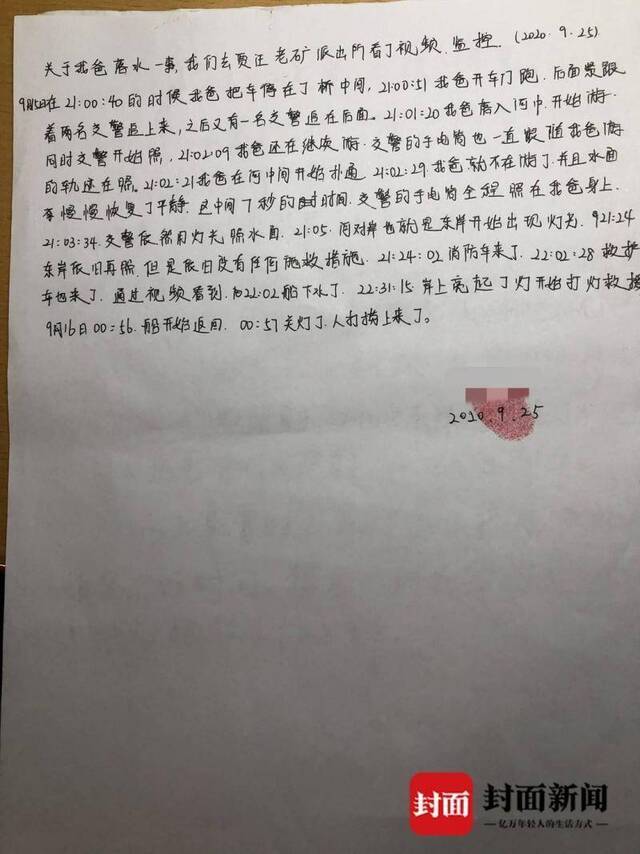 关于我爸落水一事,我们去贾汪老矿派出所看了视频监控.(2020.9.25)
9月15日在21:00:40的时候我爸把车停在了桥中间,21:00:51我爸开车门跑.后面紧跟
着两名交警追上来,之后又有一名交警追在后面.21:01:20我爸落入河中.开始游.
同时交警开始照,21:02:09我爸还在继续游.交警的手电筒也一直跟随我爸游
的轨迹在照.21:02:21我爸在河中间开始扑通.21:02:29.我爸就不在游了.并且水面
慢慢恢复了平静.这中间7秒的时间.交警的手电筒全程照在我爸身上.
21:03:34.交警依旧用灯光照水面.21:05.河对岸也就是东岸开始出现灯光.21:24
东岸依旧再照.但是依旧没有任何施救措施.21:24:02消防车来了.22:02:28救护
车也来了.通过视频看到.22:02船下水了.22:31:15.岸上亮起了灯开始打灯救援
9月16日00:56.船开始返回.00:57关灯了.人打捞上来了。
2020.9.25
封面 封面新闻
亿万年轻人的生活方式